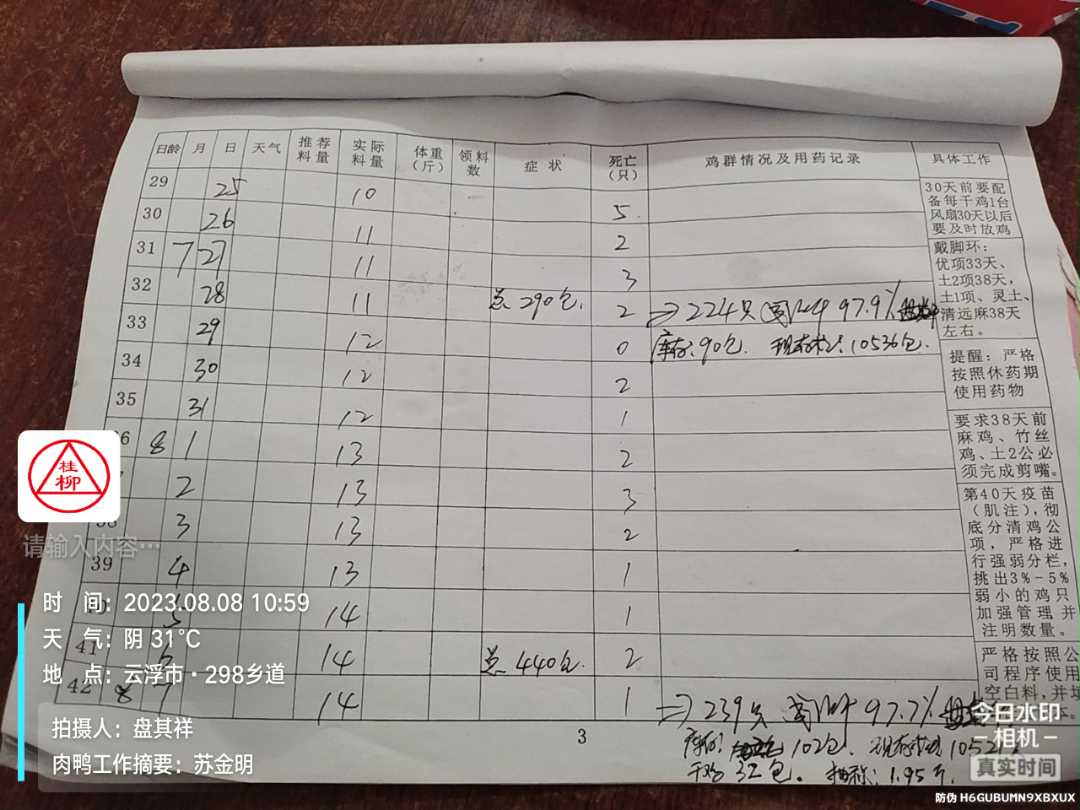 日龄 月 日 天气 推荐料量 实际料量 体重(斤) 领料数 症状 死亡(只) 鸡群情况及用药记录 具体工作
29 25 10 5
30 26 11 2
31 7 27 11 3
32 28 11 总290包. 2 ⇒224只 97.9%
33 29 12 0 库存:90包. 10536包.
34 30 12 2
35 31 12 1
6 8 1 13 2
2 13 3
38 3 13 2
39 4 13 1
5 14 1
41 14 总440包. 2
42 8 7 14 1 ⇒239只 97.7%
102包.
32包。 抽称:1.95斤.
30天前要配
备每千鸡1台
风扇30天以后
要及时放鸡
戴脚环:
优项33天、
土2项38天,
土1项、灵土、
清远麻38天
左右。
提醒:严格
按照休药期
使用药物
要求38天前
麻鸡、竹丝
鸡、土2公必
须完成剪嘴。
第40天疫苗
(肌注),彻
底分清鸡公
项,严格进
行强弱分栏,
挑出3%-5%
弱小的鸡只
加强管理并
注明数量。
严格按照公
司程序使用
空白料,并
3
桂柳
请输入内容…
时 间:2023.08.08 10:59
天 气:阴 31℃
地 点:云浮市·298乡道
拍摄人:盘其祥
肉鸭工作摘要:苏金明
今日水印
-相机-
真实时间
防伪 H6GUBUMN9XBXUX